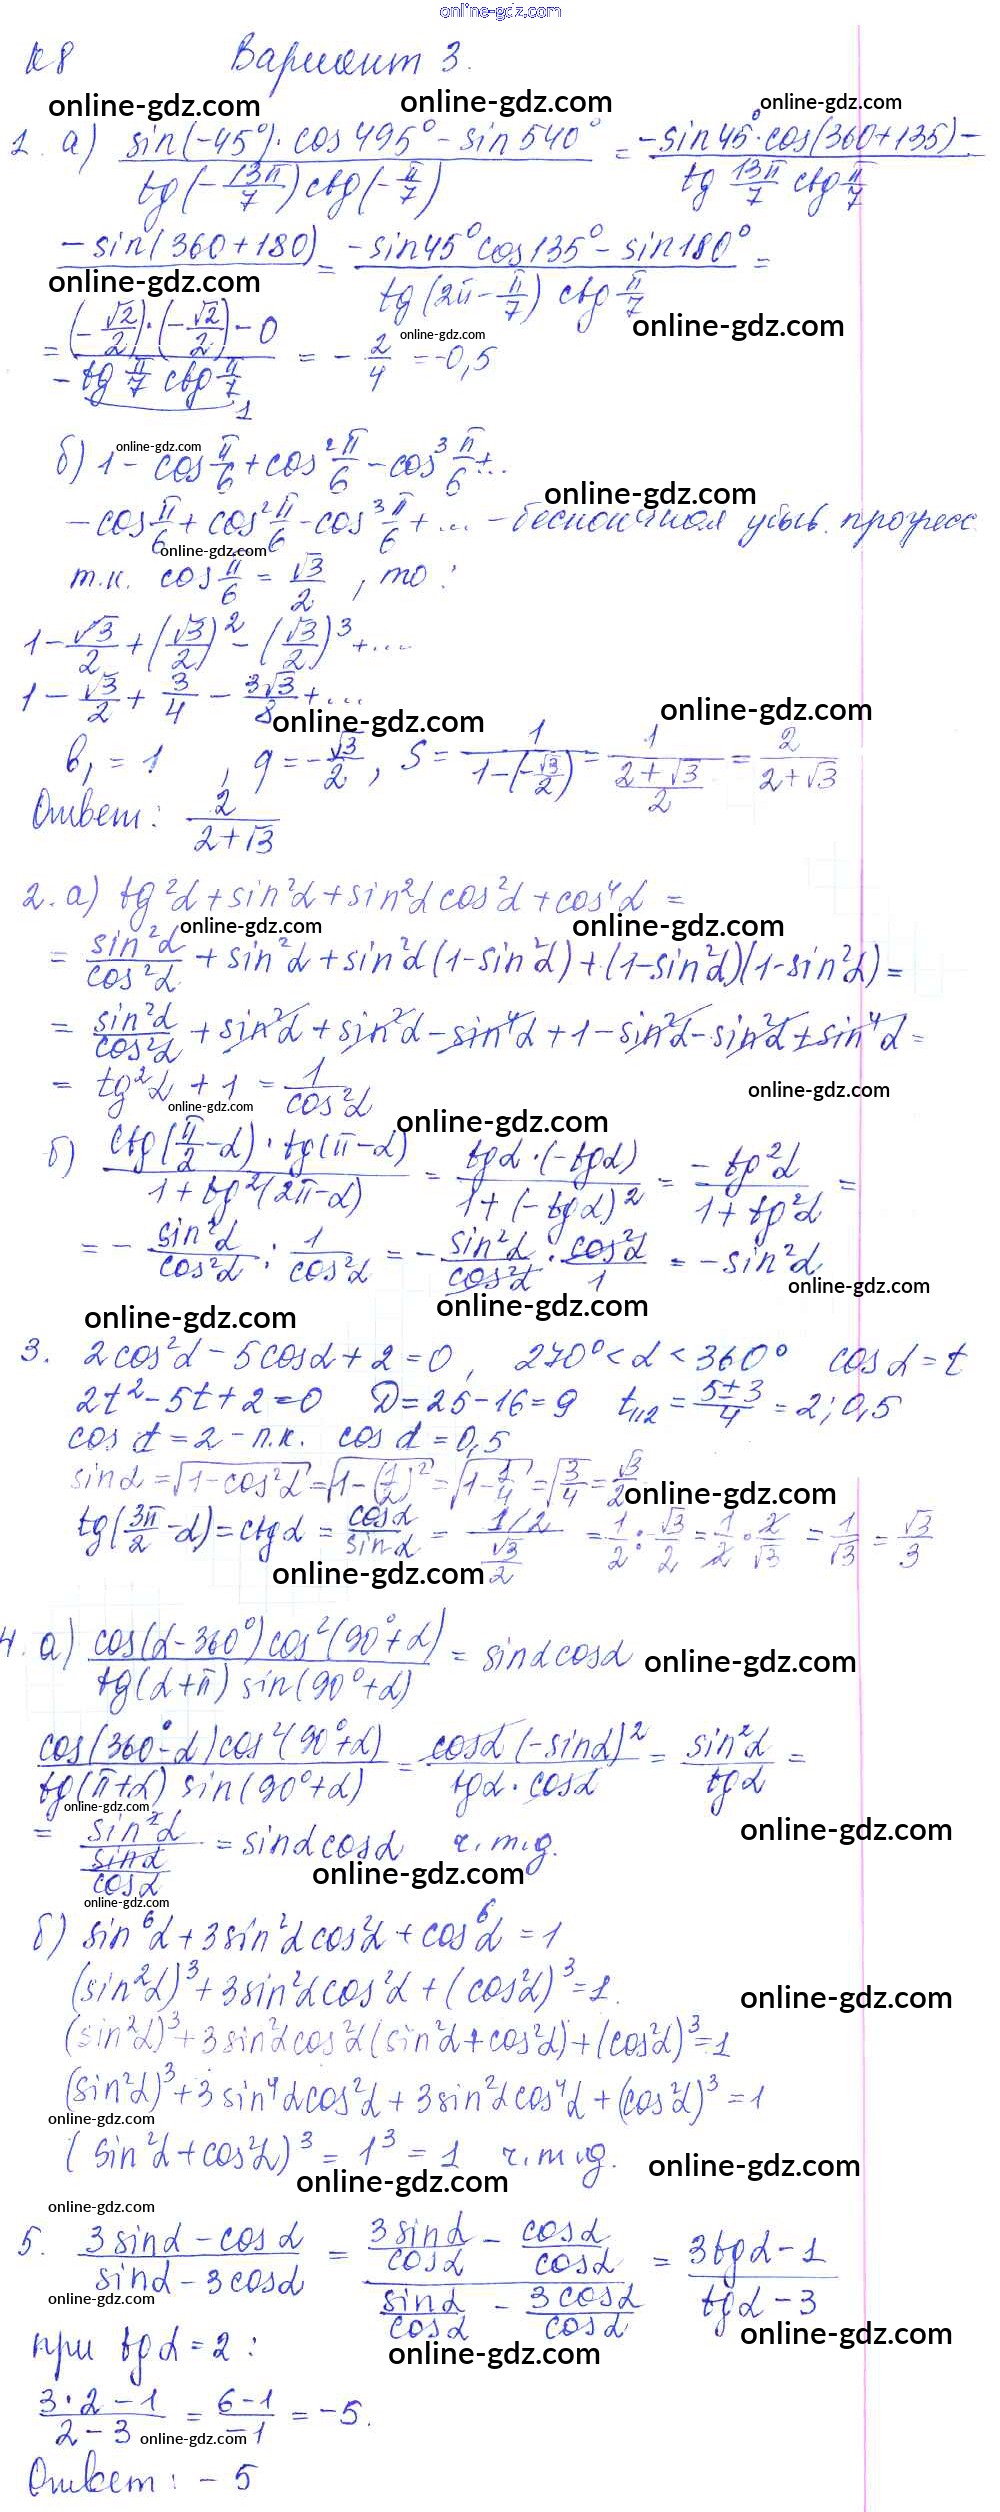 online-gdz.com
К8 Вариант 3.
online-gdz.com online-gdz.com online-gdz.com
1. а) (sin(-45°)·cos495° - sin540°)/(tg(-13π/7)ctg(-π/7)) = (-sin45°·cos(360+135) -
-sin(360+180))/(tg 13π/7 ctg π/7) = (-sin45°cos135° - sin180°)/(tg(2π - π/7) ctg π/7) =
online-gdz.com online-gdz.com
= ((-√2/2)·(-√2/2) - 0)/(-tg π/7 ctg π/7) = -2/4 = -0,5
1
online-gdz.com
online-gdz.com
б) 1 - cos π/6 + cos² π/6 - cos³ π/6 + ...
online-gdz.com
- cos π/6 + cos² π/6 - cos³ π/6 + ... - бесконечная убыв. прогресс
online-gdz.com
т.к. cos π/6 = √3/2, то:
1 - √3/2 + (√3/2)² - (√3/2)³ + ...
1 - √3/2 + 3/4 - 3√3/8 + ...
online-gdz.com online-gdz.com
b₁ = 1, q = -√3/2, S = 1/(1-(-√3/2)) = 1/((2+√3)/2) = 2/(2+√3)
Ответ: 2/(2+√3)
2. а) tg²α + sin²α + sin²α cos²α + cos⁴α =
online-gdz.com online-gdz.com
= sin²α/cos²α + sin²α + sin²α(1-sin²α) + (1-sin²α)(1-sin²α) =
= sin²α/cos²α + sin²α + sin²α - sin⁴α + 1 - sin²α - sin²α + sin⁴α =
= tg²α + 1 = 1/cos²α
online-gdz.com
online-gdz.com online-gdz.com
б) (ctg(π/2 - α)·tg(π-α))/(1+tg²(2π-α)) = (tgα·(-tgα))/(1+(-tgα)²) = -tg²α/(1+tg²α) =
= -sin²α/cos²α : 1/cos²α = -sin²α/cos²α · cos²α/1 = -sin²α
online-gdz.com
online-gdz.com online-gdz.com
3. 2cos²α - 5cosα + 2 = 0, 270° < α < 360° cosα = t
2t² - 5t + 2 = 0 D = 25-16 = 9 t₁,₂ = (5±3)/4 = 2; 0,5
cos α = 2 - п.к. cos α = 0,5
sinα = √(1-cos²α) = √(1-(1/2)²) = √(1-1/4) = √(3/4) = √3/2
online-gdz.com
tg(3π/2 - α) = ctgα = cosα/sinα = (1/2)/(√3/2) = 1/2 : √3/2 = 1/2 · 2/√3 = 1/√3 = √3/3
online-gdz.com
4. а) (cos(α-360°)cos²(90°+α))/(tg(α+π) sin(90°+α)) = sinαcosα
online-gdz.com
(cos(360°-α)cos²(90°+α))/(tg(π+α) sin(90°+α)) = (cosα(-sinα)²)/(tgα·cosα) = sin²α/tgα =
online-gdz.com
online-gdz.com
= sin²α/(sinα/cosα) = sinαcosα ч.т.д.
online-gdz.com
online-gdz.com
б) sin⁶α + 3sin²αcos²α + cos⁶α = 1
(sin²α)³ + 3sin²αcos²α + (cos²α)³ = 1.
online-gdz.com
(sin²α)³ + 3sin²αcos²α(sin²α + cos²α) + (cos²α)³ = 1
(sin²α)³ + 3sin⁴αcos²α + 3sin²αcos⁴α + (cos²α)³ = 1
online-gdz.com
(sin²α + cos²α)³ = 1³ = 1 ч.т.д.
online-gdz.com online-gdz.com
online-gdz.com
5. (3sinα - cosα)/(sinα - 3cosα) = (3sinα/cosα - cosα/cosα)/(sinα/cosα - 3cosα/cosα) = (3tgα - 1)/(tgα - 3)
online-gdz.com
online-gdz.com
при tgα = 2:
online-gdz.com
(3·2 - 1)/(2 - 3) = (6-1)/(-1) = -5.
online-gdz.com
Ответ: -5